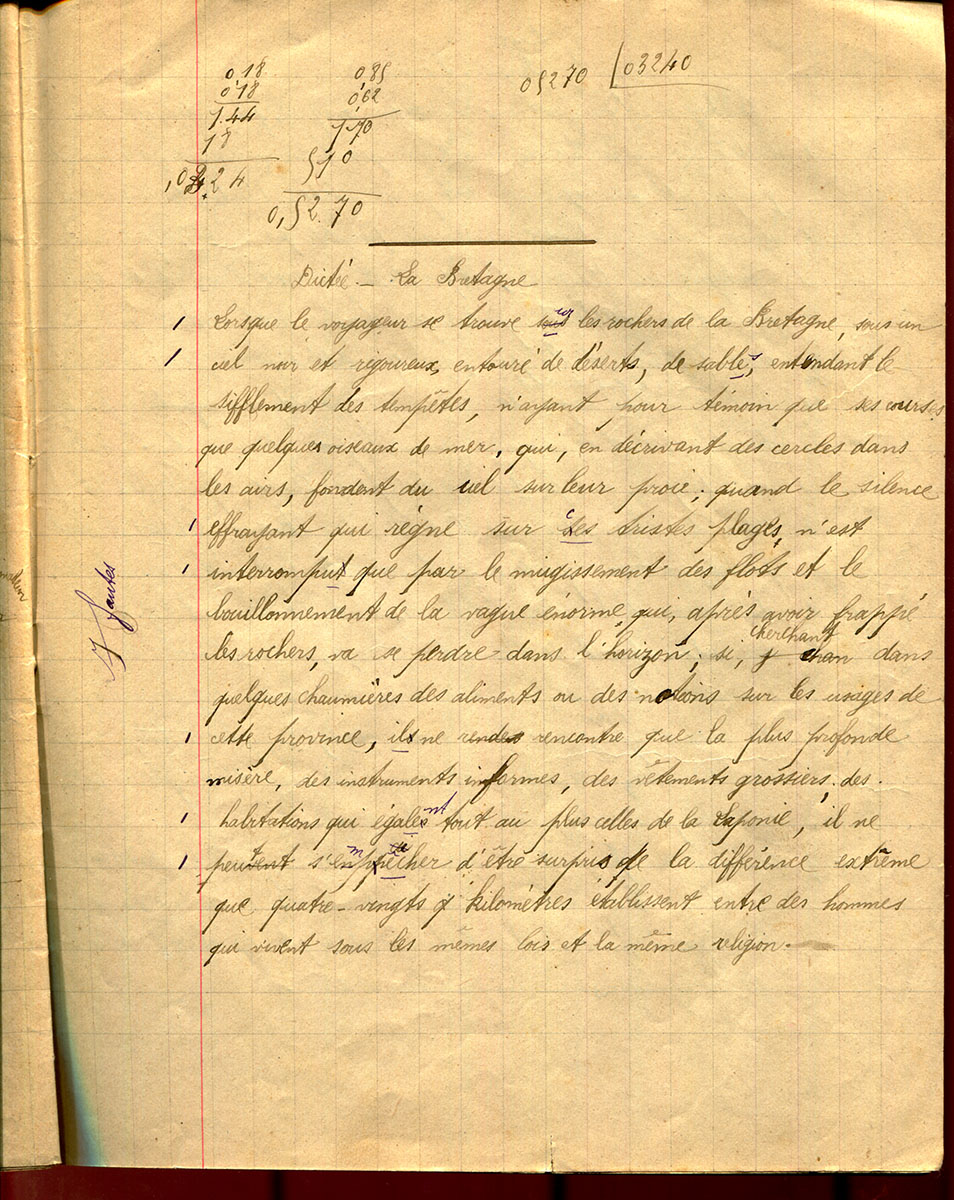 0,18
0,18
1.44
18
,0324
0,85
0,62
1,70
510
0,52.70
05270
03240
Dictée - La Bretagne
Lorsque le voyageur se trouve sur les rochers de la Bretagne, sous un
ciel noir et rigoureux, entouré de déserts, de sables, entendant le
sifflement des tempêtes, n'ayant pour témoin que ses courses
que quelques oiseaux de mer, qui, en décrivant des cercles dans
les airs, fondent du ciel sur leur proie; quand le silence
effrayant qui règne sur ces tristes plages, n'est
interromput que par le mugissement des flots et le
bouillonnement de la vague énorme, qui, après avoir frappé
les rochers, va se perdre dans l'horizon; si, cherchant dans
quelques chaumières des aliments ou des notions sur les usages de
cette province, il ne rencontre que la plus profonde
misère, des instruments informes, des vêtements grossiers, des
habitations qui égalent tout au plus celles de la Laponie, il ne
peut s'empêcher d'être surpris de la différence extrême
que quatre-vingts kilomètres établissent entre des hommes
qui vivent sous les mêmes lois et la même religion.
7 fautes